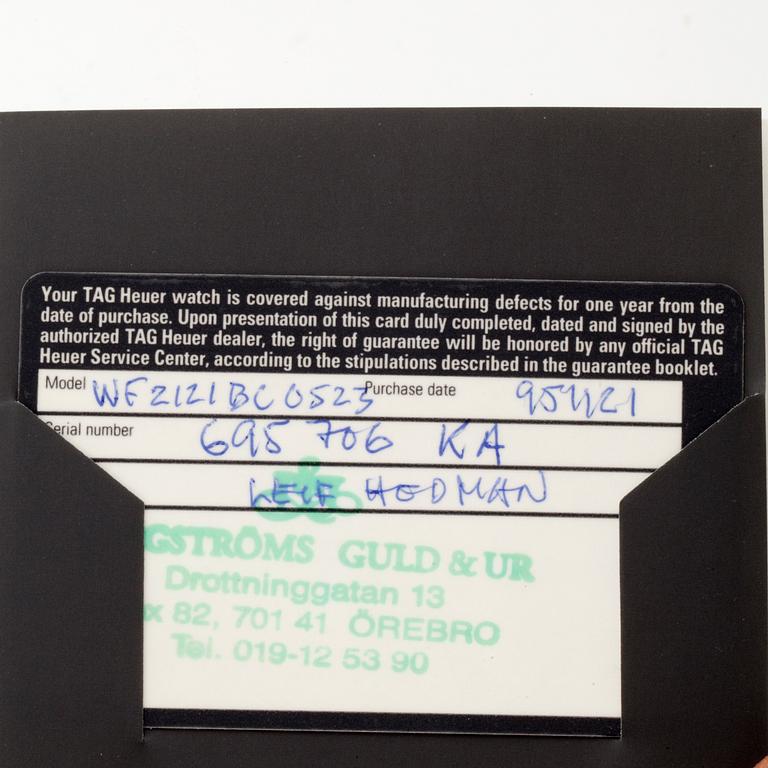 Your TAG Heuer watch is covered against manufacturing defects for one year from the
date of purchase. Upon presentation of this card duly completed, dated and signed by the
authorized TAG Heuer dealer, the right of guarantee will be honored by any official TAG
Heuer Service Center, according to the stipulations described in the guarantee booklet.
Model WF2121BC0523 Purchase date 951121
Serial number 695706 KA
LEIF HEDMAN
GSTRÖMS GULD & UR
Drottninggatan 13
x 82, 701 41 ÖREBRO
Tel. 019-12 53 90